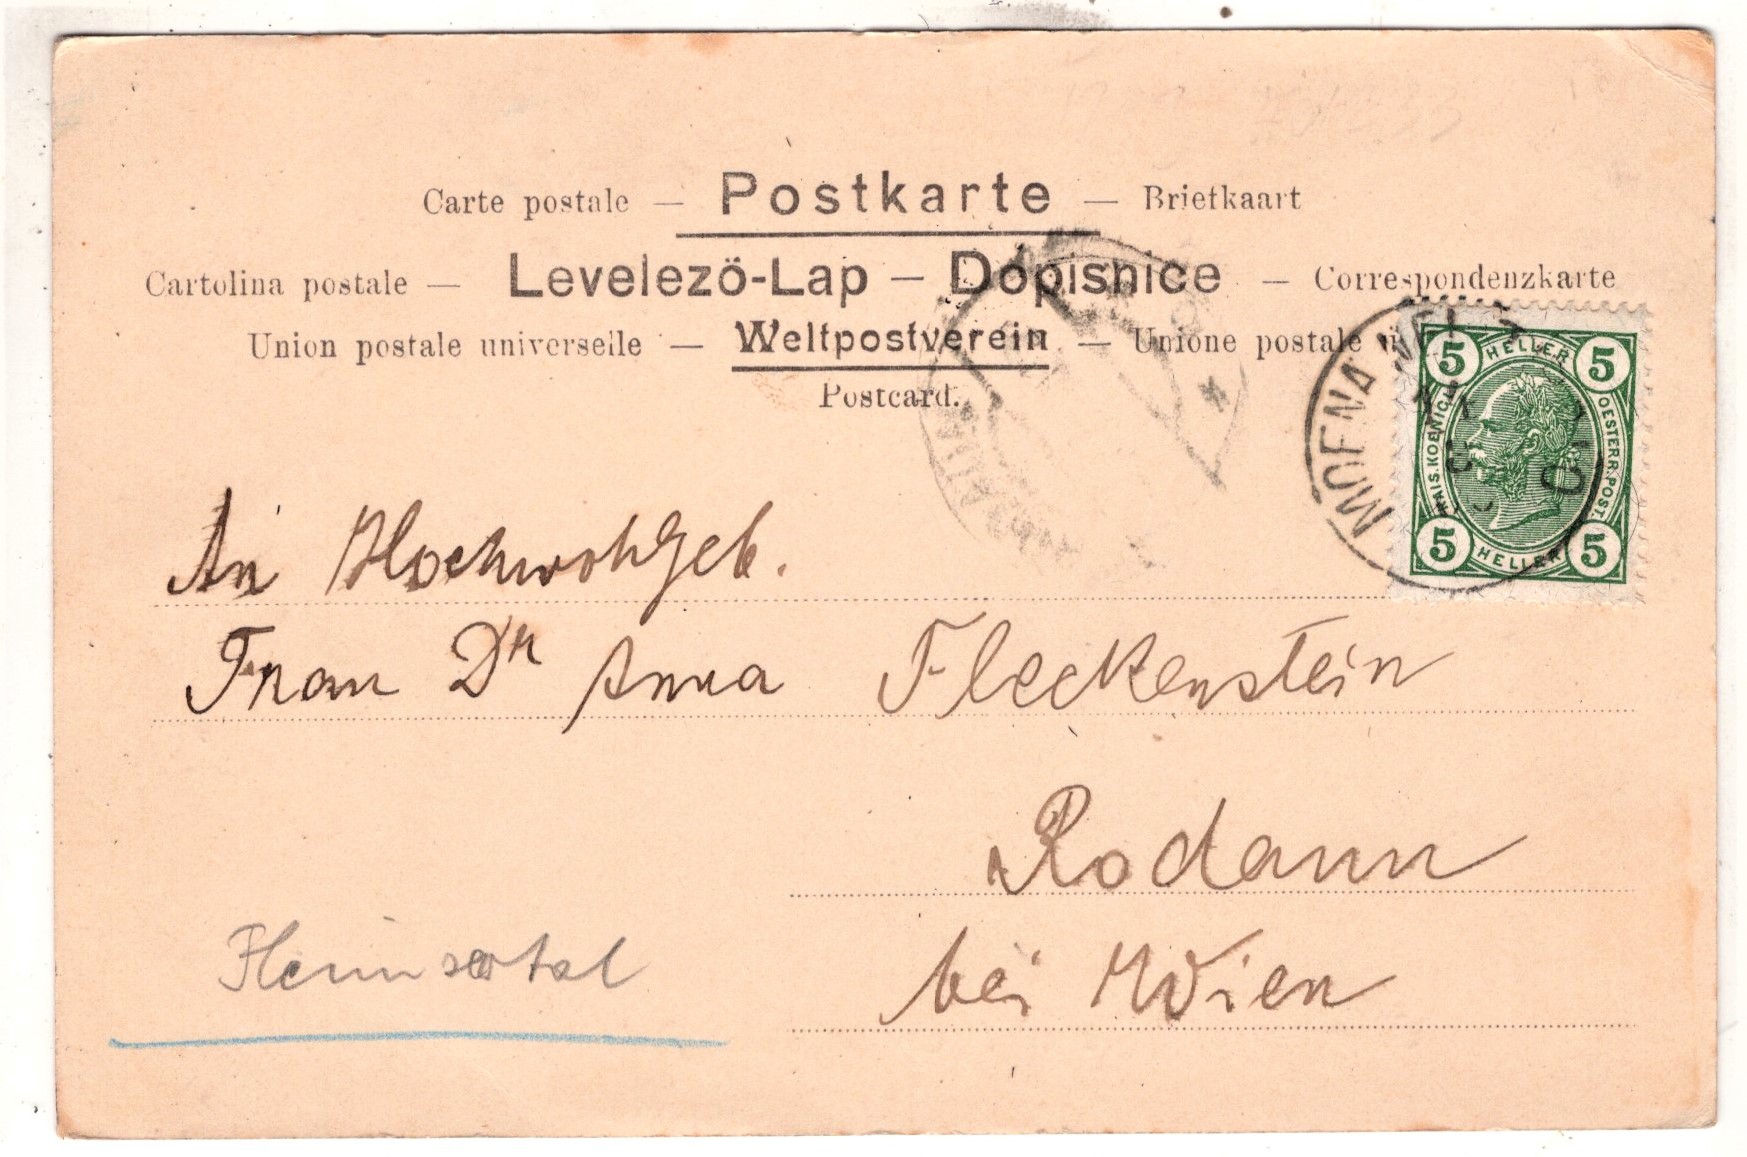 Carte postale — Postkarte — Briefkaart
Cartolina postale — Levelező-Lap — Dopisnice — Correspondenzkarte
Union postale universelle — Weltpostverein — Unione postale
Postcard.
MOENA
5 HELLER 5
KAIS. KOENIGL. OESTERR. POST.
5 HELLER 5
An Hochwohlgeb.
Frau Dr Anna Fleckenstein
Rodaun
bei Wien